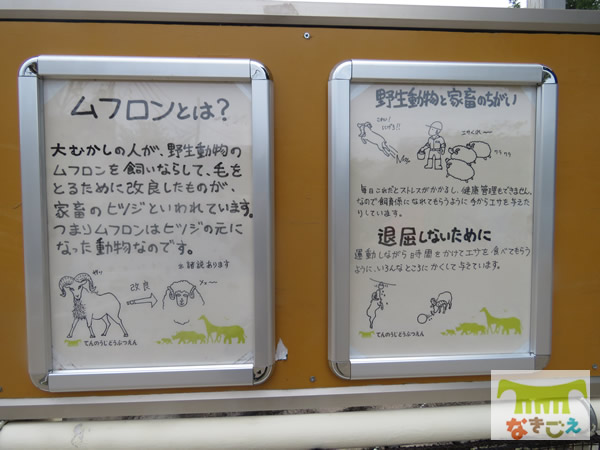 ムフロンとは?
大むかしの人が、野生動物の
ムフロンを飼いならして、毛を
とるために改良したものが、
家畜のヒツジといわれています。
つまりムフロンはヒツジの元に
なった動物なのです。
※諸説あります
改良
メェ〜
てんのうじどうぶつえん
野生動物と家畜のちがい
こわい!
にげろ!!
エサくれ〜
毎日これだとストレスがかかるし、健康管理もできません。
なので飼育係になれてもらうように手からエサを与えた
りしています。
退屈しないために
運動しながら時間をかけてエサを食べてもらう
ように、いろんなところにかくして与えています。
てんのうじどうぶつえん
なきごえ